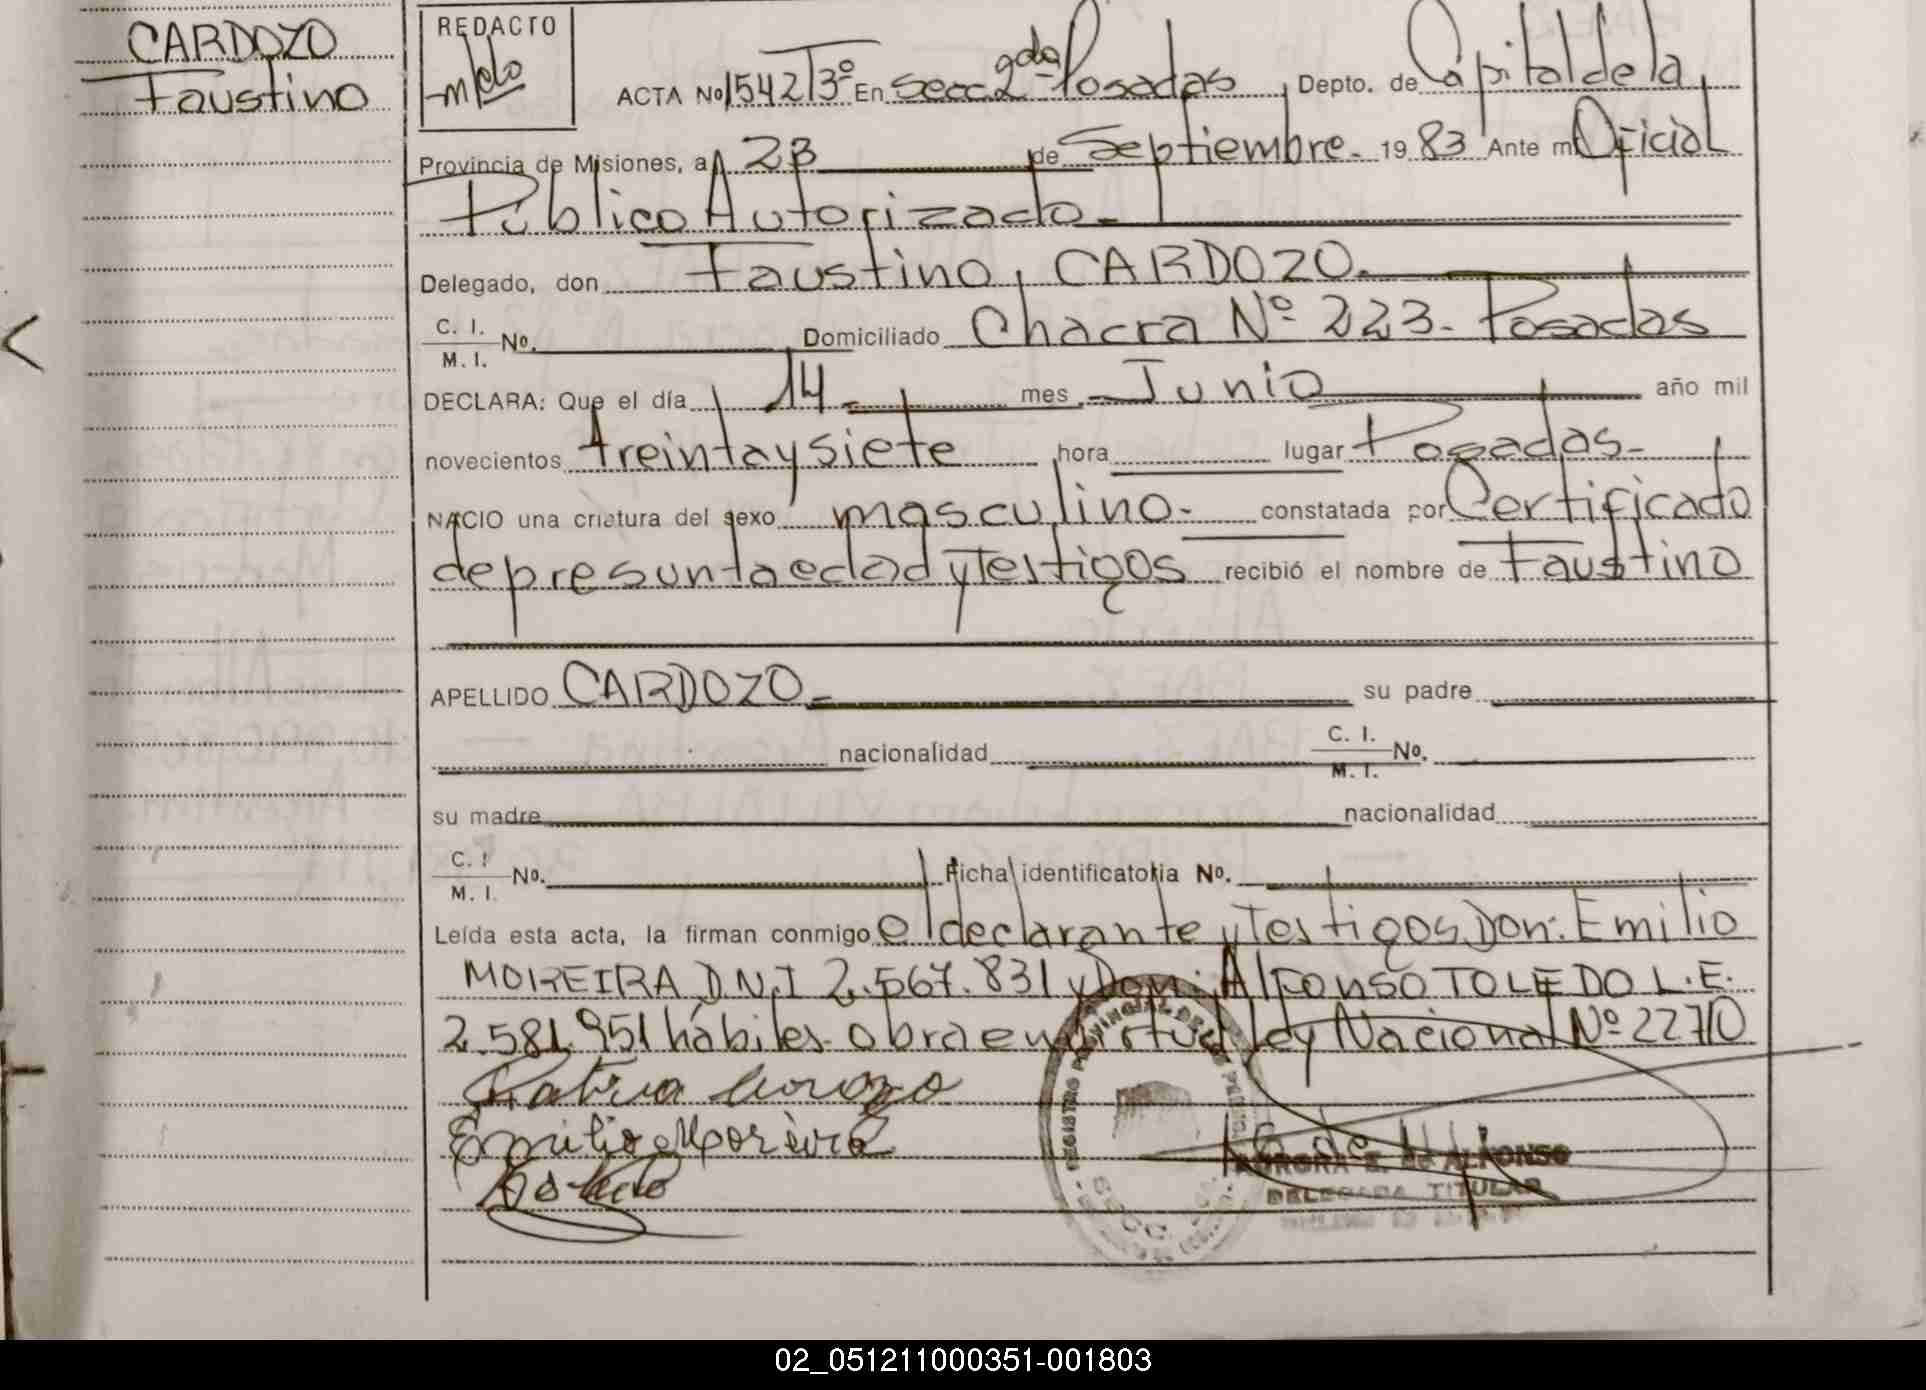 CARDOZO
Faustino
REDACTO
ACTA No 1542 T3º En Secc 2da Posadas, Depto. de Capital de la
Provincia de Misiones, a 23 de Septiembre. 1983 Ante mí Oficial
Público Autorizado.
Delegado, don Faustino, CARDOZO.
C. I.
M. I. No. Domiciliado Chacra Nº 223. Posadas
DECLARA: Que el día 14 mes Junio año mil
novecientos treinta y siete hora lugar Posadas.
NACIO una criatura del sexo masculino. constatada por Certificado
de presunta edad y Testigos recibió el nombre de Faustino
APELLIDO CARDOZO su padre
nacionalidad C. I.
M. I. No.
su madre nacionalidad
C. I
M. I. No. Ficha identificatoria No.
Leída esta acta, la firman conmigo el declarante y Testigos Don: Emilio
MOREIRA D.N.I 2.567.831 y Don: Alfonso TOLEDO L.E.
2.581.951 hábiles obra en virtud Ley Nacional Nº 22710
Emilio Moreira
REGISTRO PROVINCIAL DE LAS PERSONAS
AURORA E. de ALFONSO
DELEGADA TITULAR
02_051211000351-001803